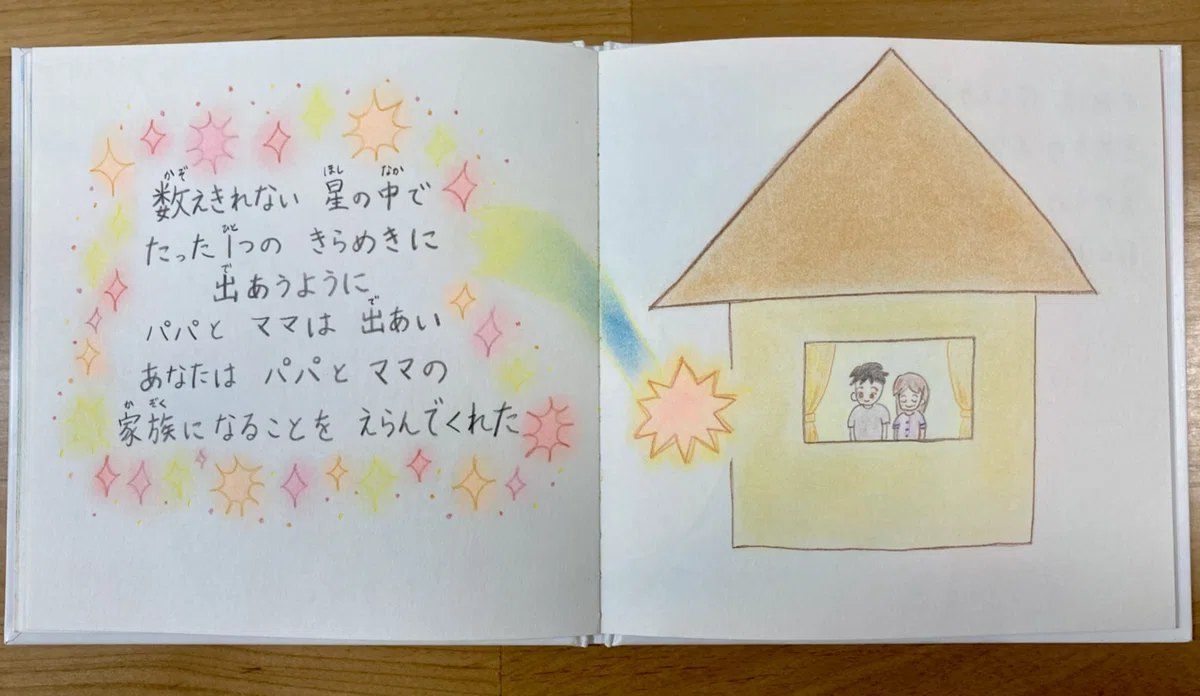 数えきれない 星の中で
たった1つの きらめきに
出あうように
パパと ママは 出あい
あなたは パパと ママの
家族に なることを えらんでくれた